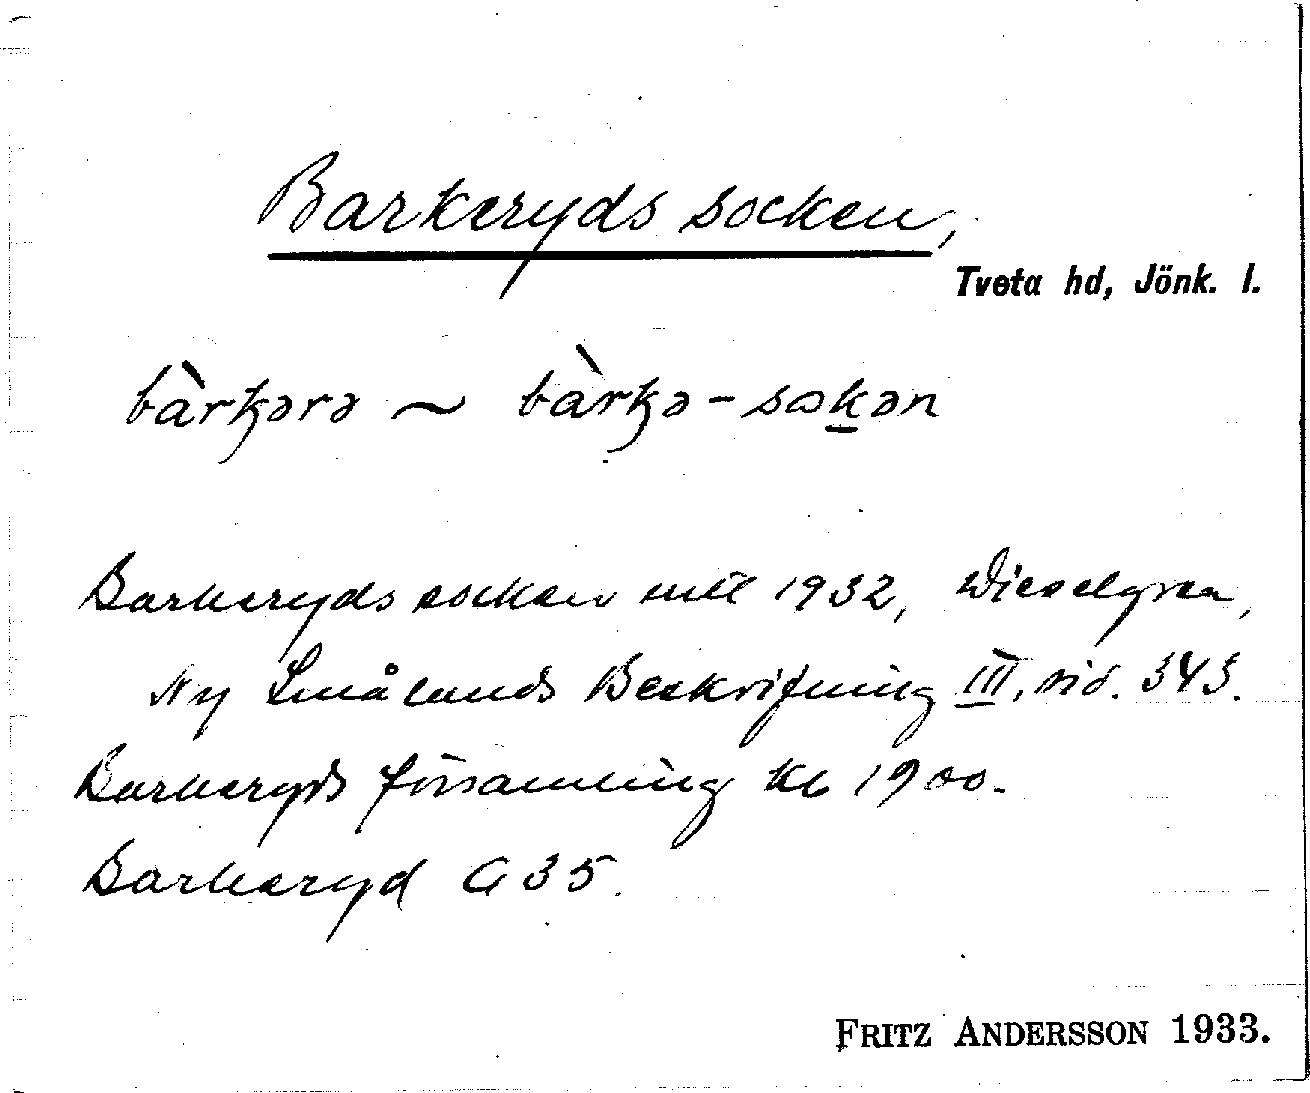 Barkeryds socken,
Tveta hd, Jönk. l.
bàrꞣərə ~ bàrꞣə-sɷkən
Barkeryds socken 1932, Wieselgren,
Ny Smålands Beskrifning III, sid. 343.
Barkeryds församling Kb 1900.
Barkeryd G 35.
FRITZ ANDERSSON 1933.